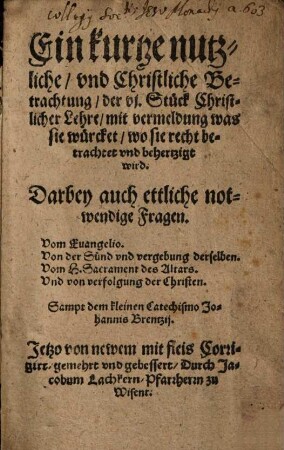 Collegij Soc. Jesu Monachij a. 603
Ein kurtze nutz-
liche/ vnd Christliche Be-
trachtung/ der vj. Stück Christ-
licher Lehre/ mit vermeldung was
sie würcket/ wo sie recht be-
trachtet vnd behertziget
wird.
Darbey auch ettliche not-
wendige Fragen.
Vom Euangelio.
Von der Sünd vnd vergebung derselben.
Vom H. Sacrament des Altars.
Vnd von verfolgung der Christen.
Sampt dem kleinen Catechismo Jo-
hannis Brentzij.
Jetzo von newem mit fleis Corri-
girt/ gemehrt vnd gebessert/ Durch Ja-
cobum Lachkern/ Pfarrherrn zu
Wisent.